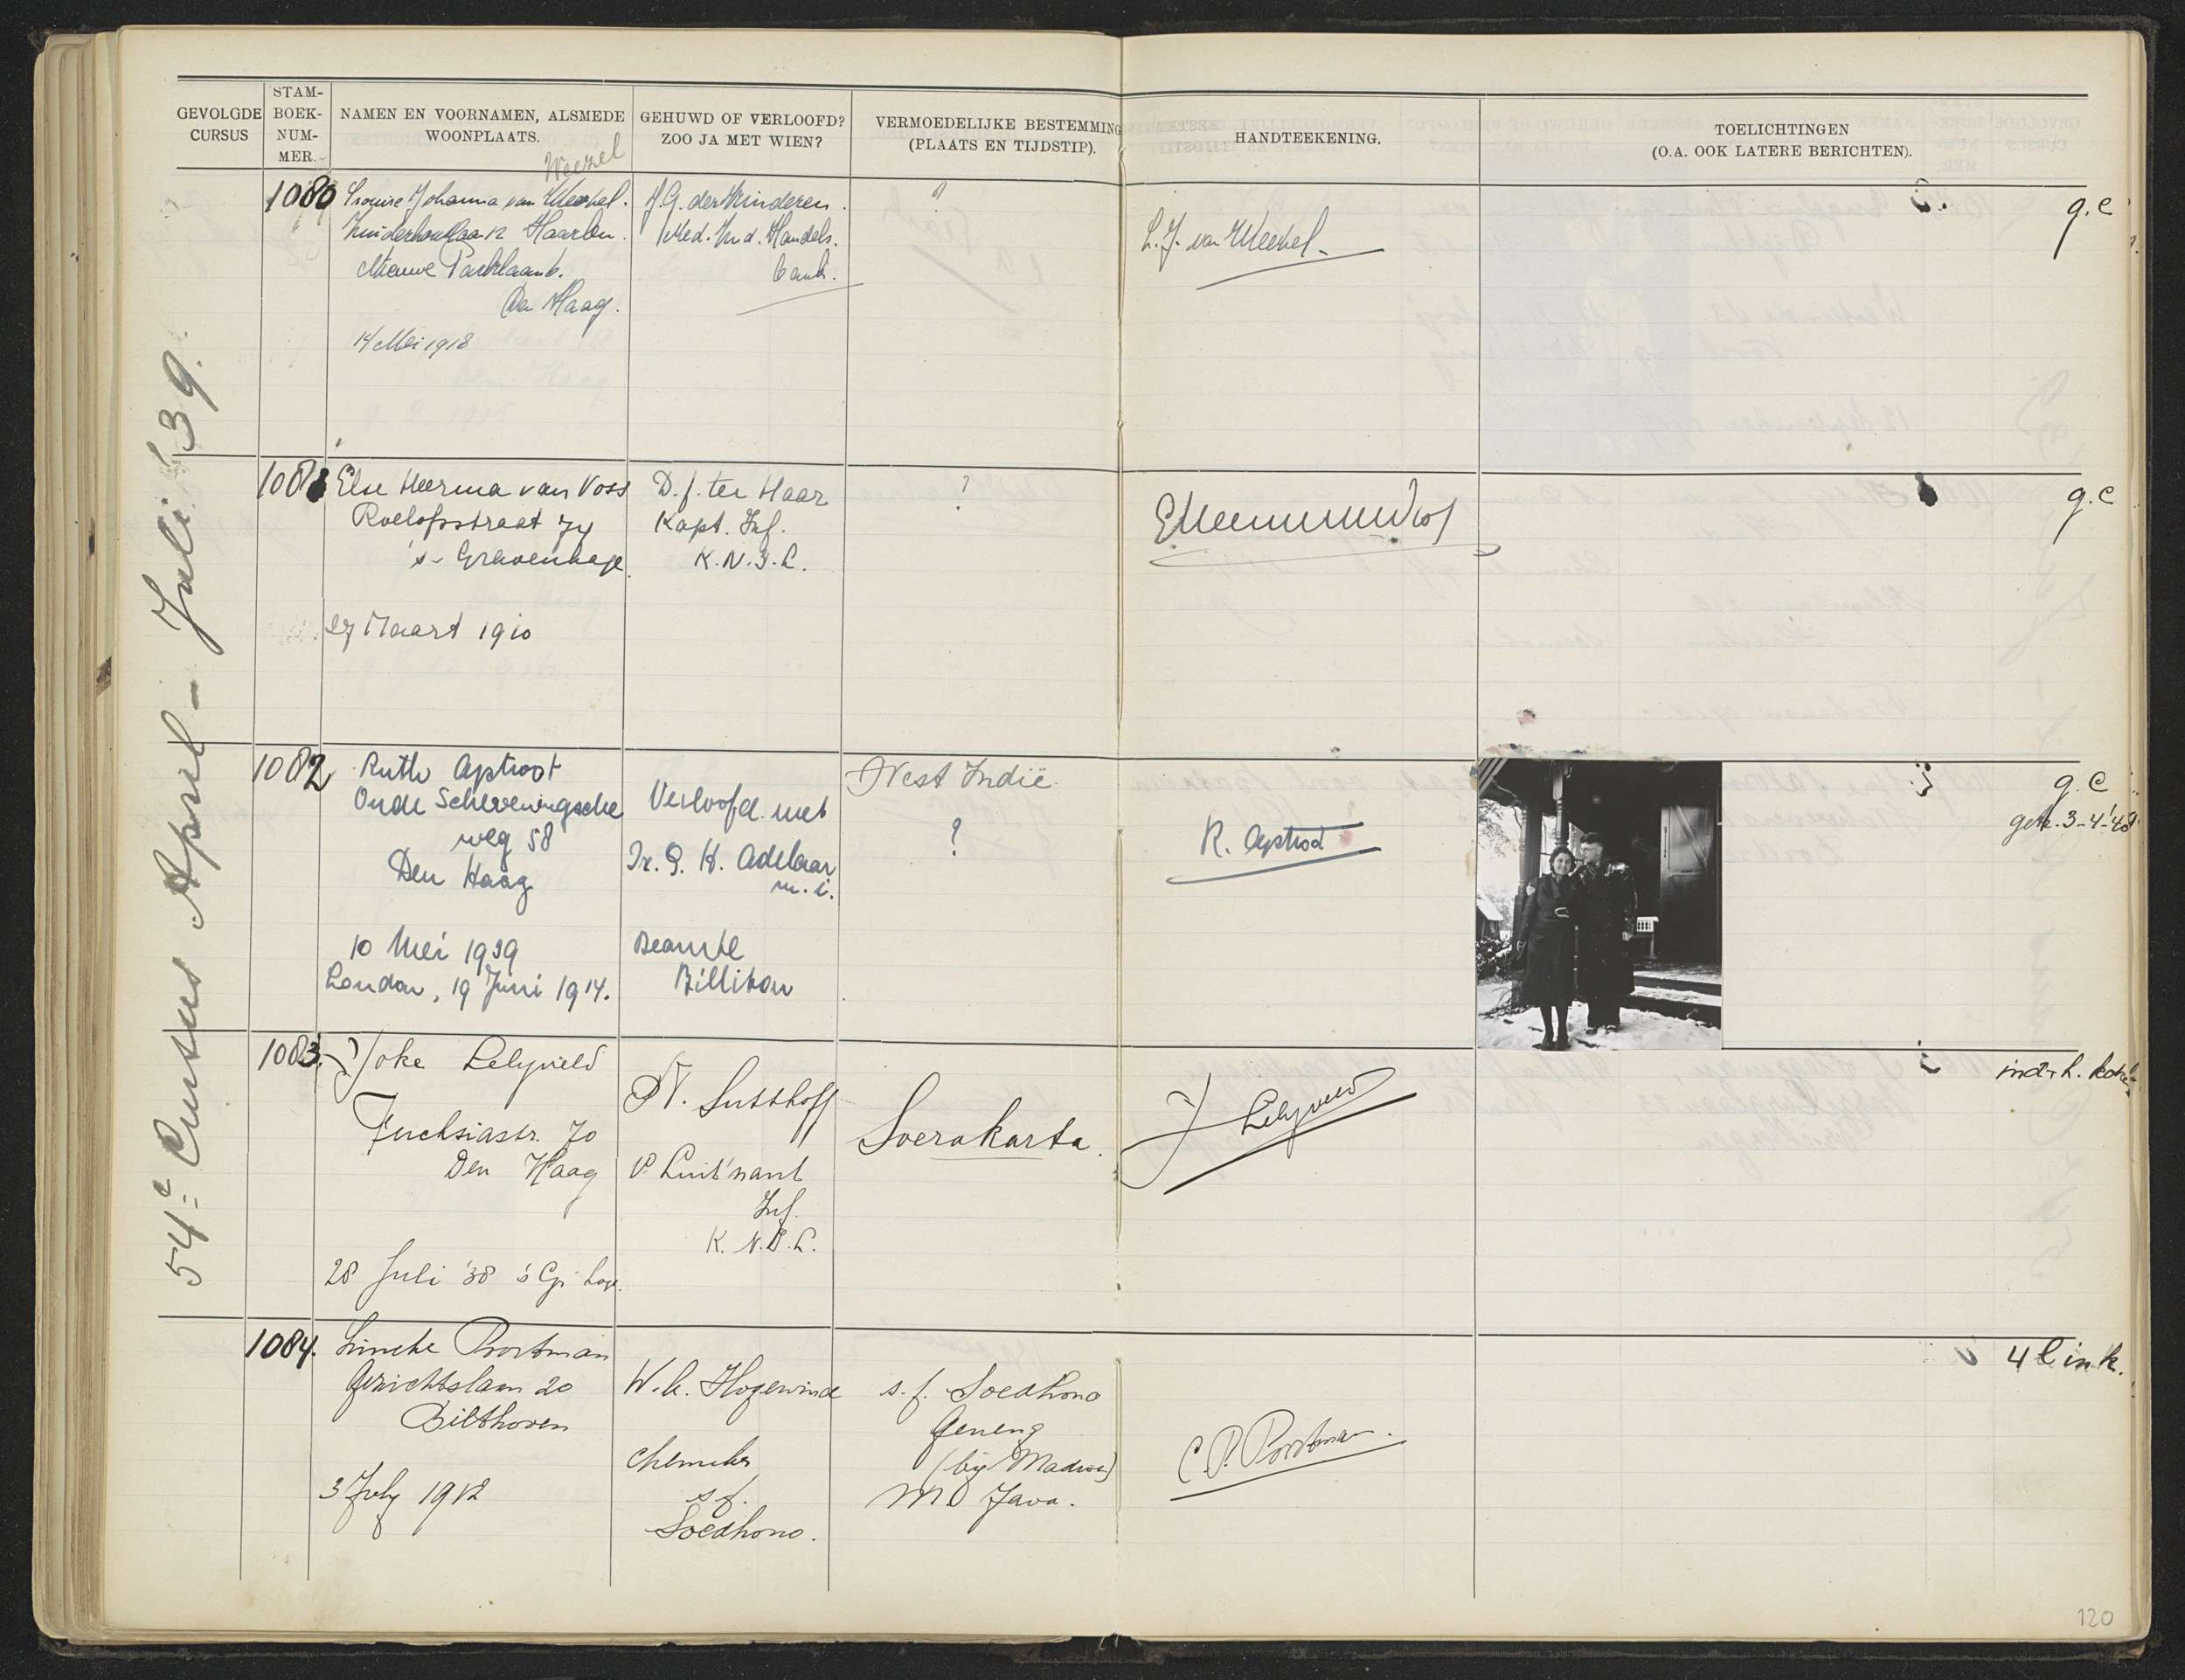 GEVOLGDE CURSUS
STAM-BOEK-NUM-MER.
NAMEN EN VOORNAMEN, ALSMEDE WOONPLAATS.
GEHUWD OF VERLOOFD? ZOO JA MET WIEN?
VERMOEDELIJKE BESTEMMING (PLAATS EN TIJDSTIP).
HANDTEEKENING.
TOELICHTINGEN
(O.A. OOK LATERE BERICHTEN).
54e Cursus April - Juli '39.
Weezel
1080
Louise Johanna van Weezel.
Haarlem.
Nieuwe Parklaan 6.
Den Haag.
14 Mei 1918
J.G. der Kinderen.
Ned. Ind. Handels.
bank.
?
L.J. van Weezel
g.c
1081
Else Heerma van Voss
Roelofsstraat 74
's-Gravenhage.
27 Maart 1910
D.J. ter Haar
Kapt. Inf.
K.N.I.L.
?
EHeermavVoss
g.c
1082
Ruth Aptroot
Oude Scheveningsche
weg 58
Den Haag
10 Mei 1939
London, 19 Juni 1914.
Verloofd met
Ir. G. H. Adelaar
m.i.
Beamte
Billiton
West Indië
?
R. Aptroot
g.c
getr. 3-4-'40
1083.
Joke Lelyveld
Fuchsiastr. 70
Den Haag
28 Juli '38 's Gr. hage.
Luit'nant
Inf.
K.N.I.L.
Soerakarta.
J Lelyveld
1084.
Lineke Portman
Gezichtslaan 20
Bilthoven
3 July 1912
W.A. Hogewind
chemiker
s.f.
Soedhono.
s.f. Soedhono
Geneng
(bij Madioen)
M.O Java.
C.P. Portman.
4 l in.k.
120